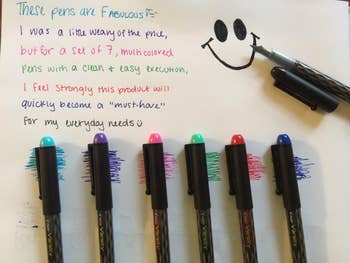 These pens are Fabulous
I was a little weary of the price,
but for a set of 7, multicolored
pens with a clean & easy execution,
I feel strongly this product will
quickly become a "must-have"
for my everyday needs